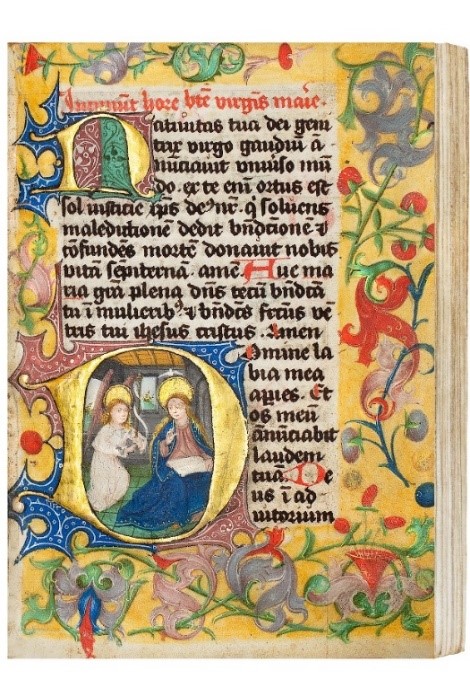 Incipiūt hore bte virgīs marie.
Natiuitas tua dei geni
trix virgo gaudiū ā
nūciauit vniuſo mū
do. ex te eni ortus est
sol iusticie xp̄s de9 nr̄. q̄ soluens
maledictione dedit bn̄dictione ⁊
cōfundēs mortē donauit nobis
vitā sepiternā. amē Aue ma
ria grā plena dn̄s tecū bn̄dcā
tu ī mulierib9 ⁊ bn̄dcs fctūs ve
tris tui ihesus cristus. Amen
Domine la
bia mea
apies. Et
os meū
ānūciabit
laudem
tuā. De
us ī ad
iutorium